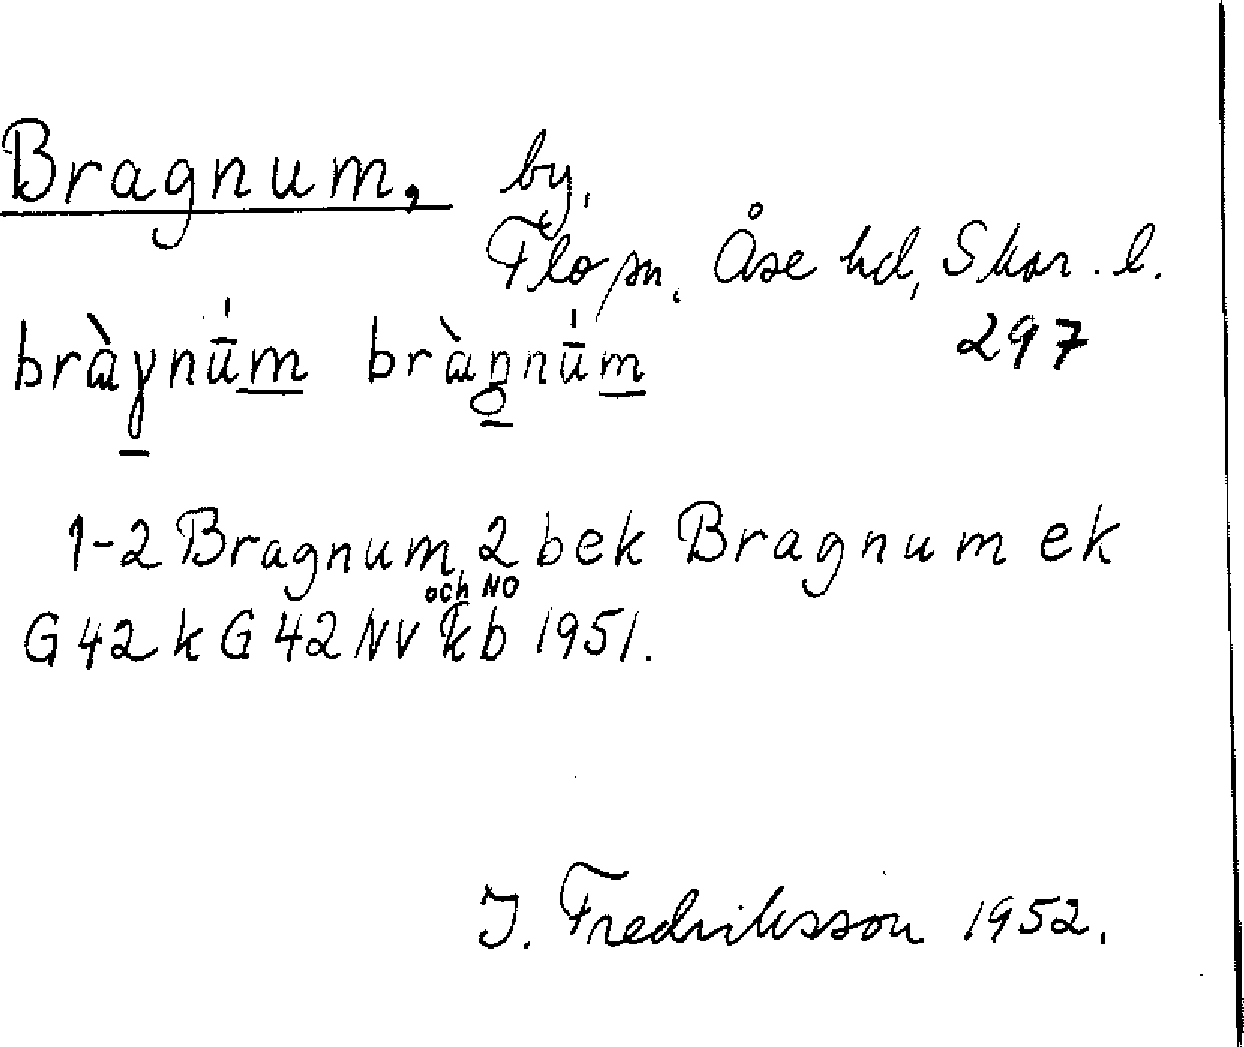 Bragnum, by,
Flo sn, Åse hd, Skar. l.
297
bràɣnū́m bràŋnū́m
1-2 Bragnum, 2 bek Bragnum ek
och NO
G 42 k G 42 NV kb 1951.
J. Fredriksson 1952.